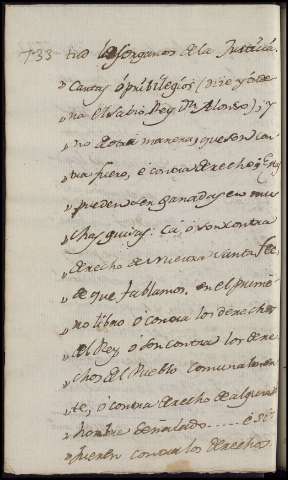 +33- tud los organos de la Justicia.
"Cartas ó pribilegios (dize y orde
na el sabio Rey Dn. Alonso); y
"no de otra manera, que son con
"tra fuero, é contra derecho é
"pueden ser ganadas en mu
"chas guisas: Cá ó son contra
"derecho de nuestra santa fee,
"de que fablamos en el prime
"ro libro ó contra los derechos
"del Rey, ó son contra los dere
"chos del Pueblo comunalmen
"te, ó contra derecho de algunt
"hombre señalado..... é si
"fueren contra los derechos